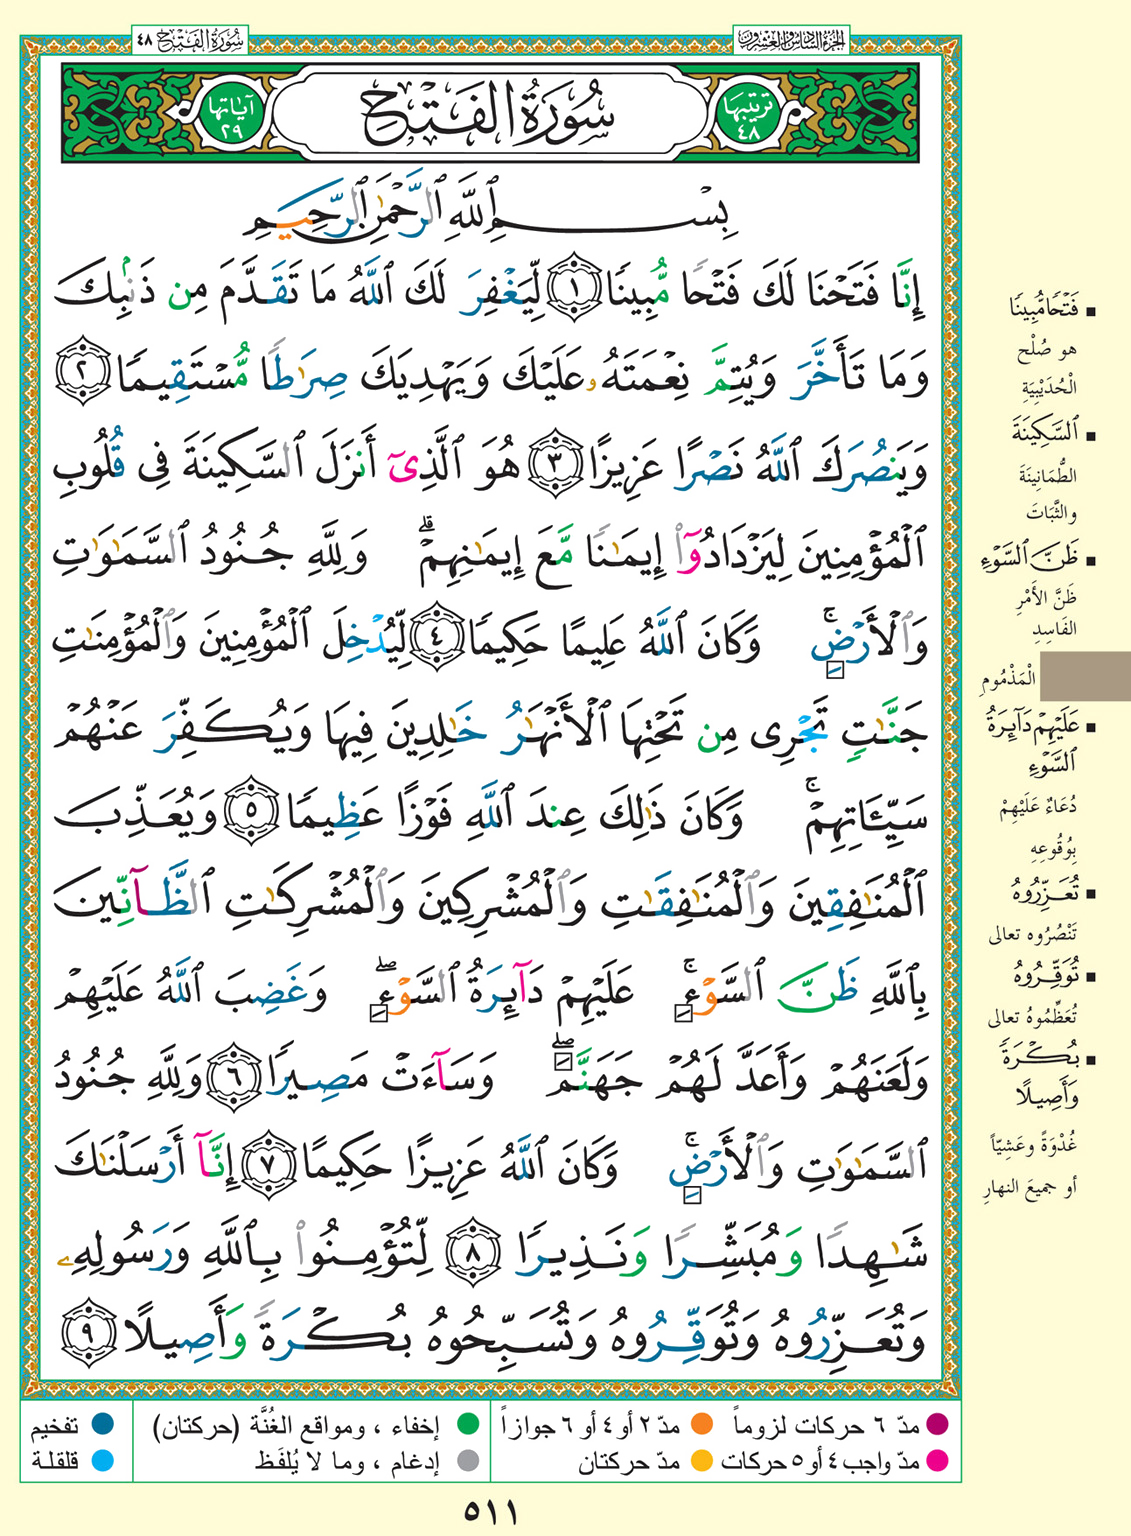 الجزء السادس والعشرون
سُورَةُ الفَتْحِ ٤٨
ترتيبها ٤٨
سُورَةُ الفَتْحِ
آياتها ٢٩
بِسْمِ ٱللَّهِ ٱلرَّحْمَٰنِ ٱلرَّحِيمِ
إِنَّا فَتَحْنَا لَكَ فَتْحًا مُّبِينًا ١ لِّيَغْفِرَ لَكَ ٱللَّهُ مَا تَقَدَّمَ مِن ذَنۢبِكَ
وَمَا تَأَخَّرَ وَيُتِمَّ نِعْمَتَهُۥ عَلَيْكَ وَيَهْدِيَكَ صِرَٰطًا مُّسْتَقِيمًا ٢
وَيَنصُرَكَ ٱللَّهُ نَصْرًا عَزِيزًا ٣ هُوَ ٱلَّذِىٓ أَنزَلَ ٱلسَّكِينَةَ فِى قُلُوبِ
ٱلْمُؤْمِنِينَ لِيَزْدَادُوٓا۟ إِيمَٰنًا مَّعَ إِيمَٰنِهِمْ ۗ وَلِلَّهِ جُنُودُ ٱلسَّمَٰوَٰتِ
وَٱلْأَرْضِ ۚ وَكَانَ ٱللَّهُ عَلِيمًا حَكِيمًا ٤ لِّيُدْخِلَ ٱلْمُؤْمِنِينَ وَٱلْمُؤْمِنَٰتِ
جَنَّٰتٍ تَجْرِى مِن تَحْتِهَا ٱلْأَنْهَٰرُ خَٰلِدِينَ فِيهَا وَيُكَفِّرَ عَنْهُمْ
سَيِّـَٔاتِهِمْ ۚ وَكَانَ ذَٰلِكَ عِندَ ٱللَّهِ فَوْزًا عَظِيمًا ٥ وَيُعَذِّبَ
ٱلْمُنَٰفِقِينَ وَٱلْمُنَٰفِقَٰتِ وَٱلْمُشْرِكِينَ وَٱلْمُشْرِكَٰتِ ٱلظَّآنِّينَ
بِٱللَّهِ ظَنَّ ٱلسَّوْءِ ۚ عَلَيْهِمْ دَآئِرَةُ ٱلسَّوْءِ ۖ وَغَضِبَ ٱللَّهُ عَلَيْهِمْ
وَلَعَنَهُمْ وَأَعَدَّ لَهُمْ جَهَنَّمَ ۖ وَسَآءَتْ مَصِيرًا ٦ وَلِلَّهِ جُنُودُ
ٱلسَّمَٰوَٰتِ وَٱلْأَرْضِ ۚ وَكَانَ ٱللَّهُ عَزِيزًا حَكِيمًا ٧ إِنَّآ أَرْسَلْنَٰكَ
شَٰهِدًا وَمُبَشِّرًا وَنَذِيرًا ٨ لِّتُؤْمِنُوا۟ بِٱللَّهِ وَرَسُولِهِۦ
وَتُعَزِّرُوهُ وَتُوَقِّرُوهُ وَتُسَبِّحُوهُ بُكْرَةً وَأَصِيلًا ٩
فَتْحًا مُّبِينًا
هو صُلْح
الْحُدَيْبِيَةِ
ٱلسَّكِينَةَ
الطُّمَانِينَةَ
والثَّبَاتَ
ظَنَّ ٱلسَّوْءِ
ظَنَّ الأَمْرِ
الفَاسِدِ
الْمَذْمُومِ
عَلَيْهِمْ دَآئِرَةُ
ٱلسَّوْءِ
دُعَاءٌ عَلَيْهِمْ
بِوُقُوعِهِ
تُعَزِّرُوهُ
تَنْصُرُوه تعالى
تُوَقِّرُوهُ
تُعَظِّمُوهُ تعالى
بُكْرَةً
وَأَصِيلًا
غُدْوَةً وعَشِيّاً
أو جميعَ النهارِ
مدّ ٦ حركات لزوماً
مدّ ٢ أو ٤ أو ٦ جوازاً
إخفاء ، ومواقع الغُنَّة (حركتان)
تفخيم
مدّ واجب ٤ أو ٥ حركات
مدّ حركتان
إدغام ، وما لا يُلفَظ
قلقلة
٥١١